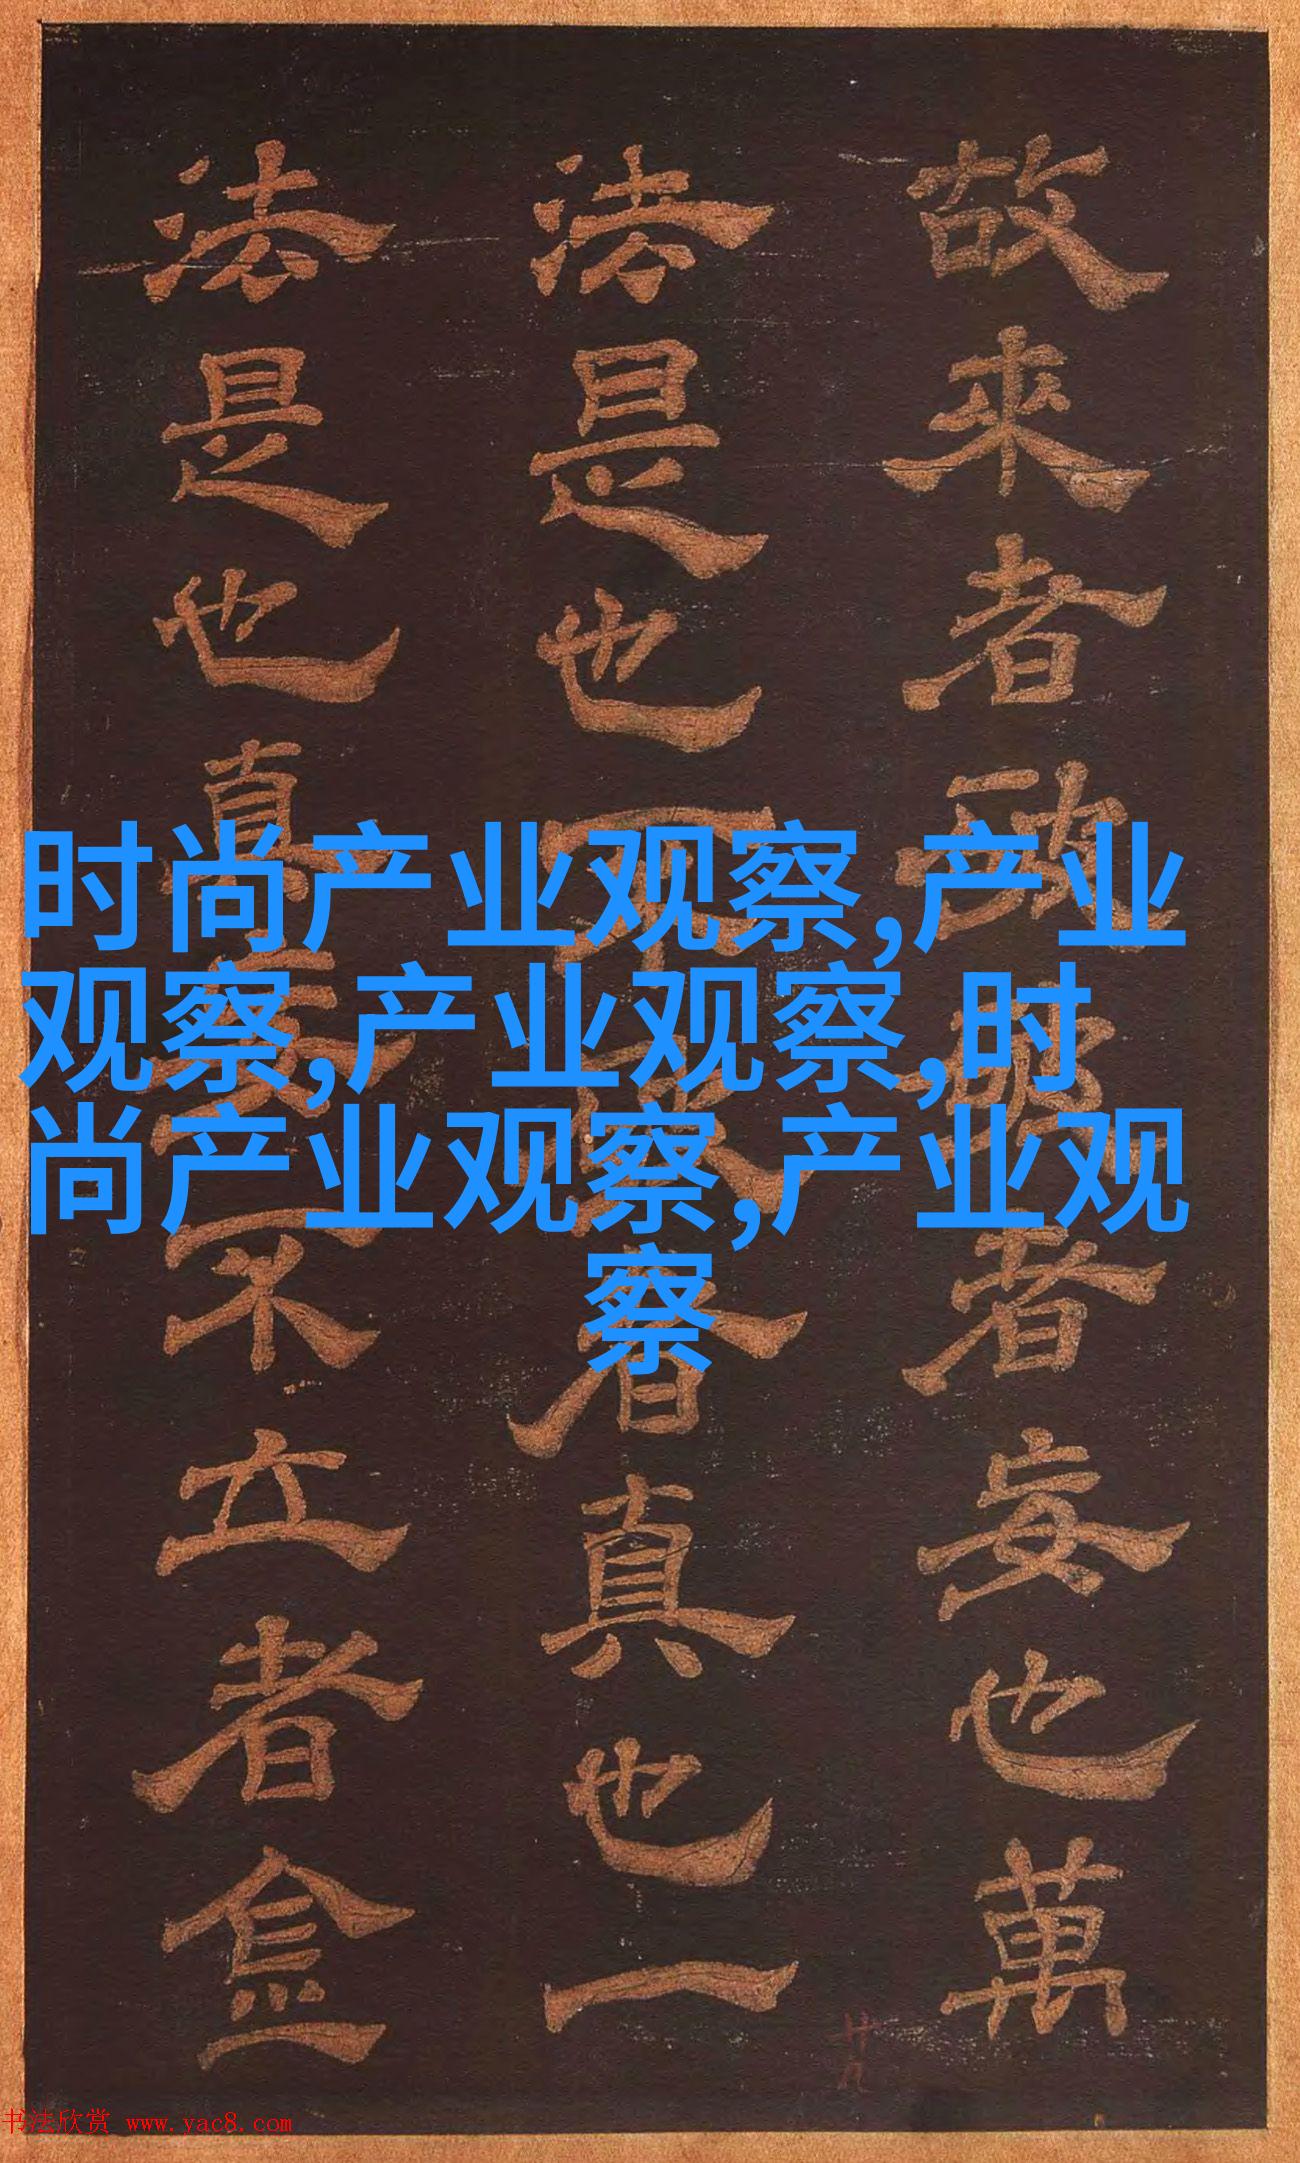 故来者
者妄也萬
法是也不
者真也一
法是也真
不立者
时尚产业观察,产业
观察,产业观察,时
尚产业观察,产业观
察
廿九
书法欣赏 www.yac8.com